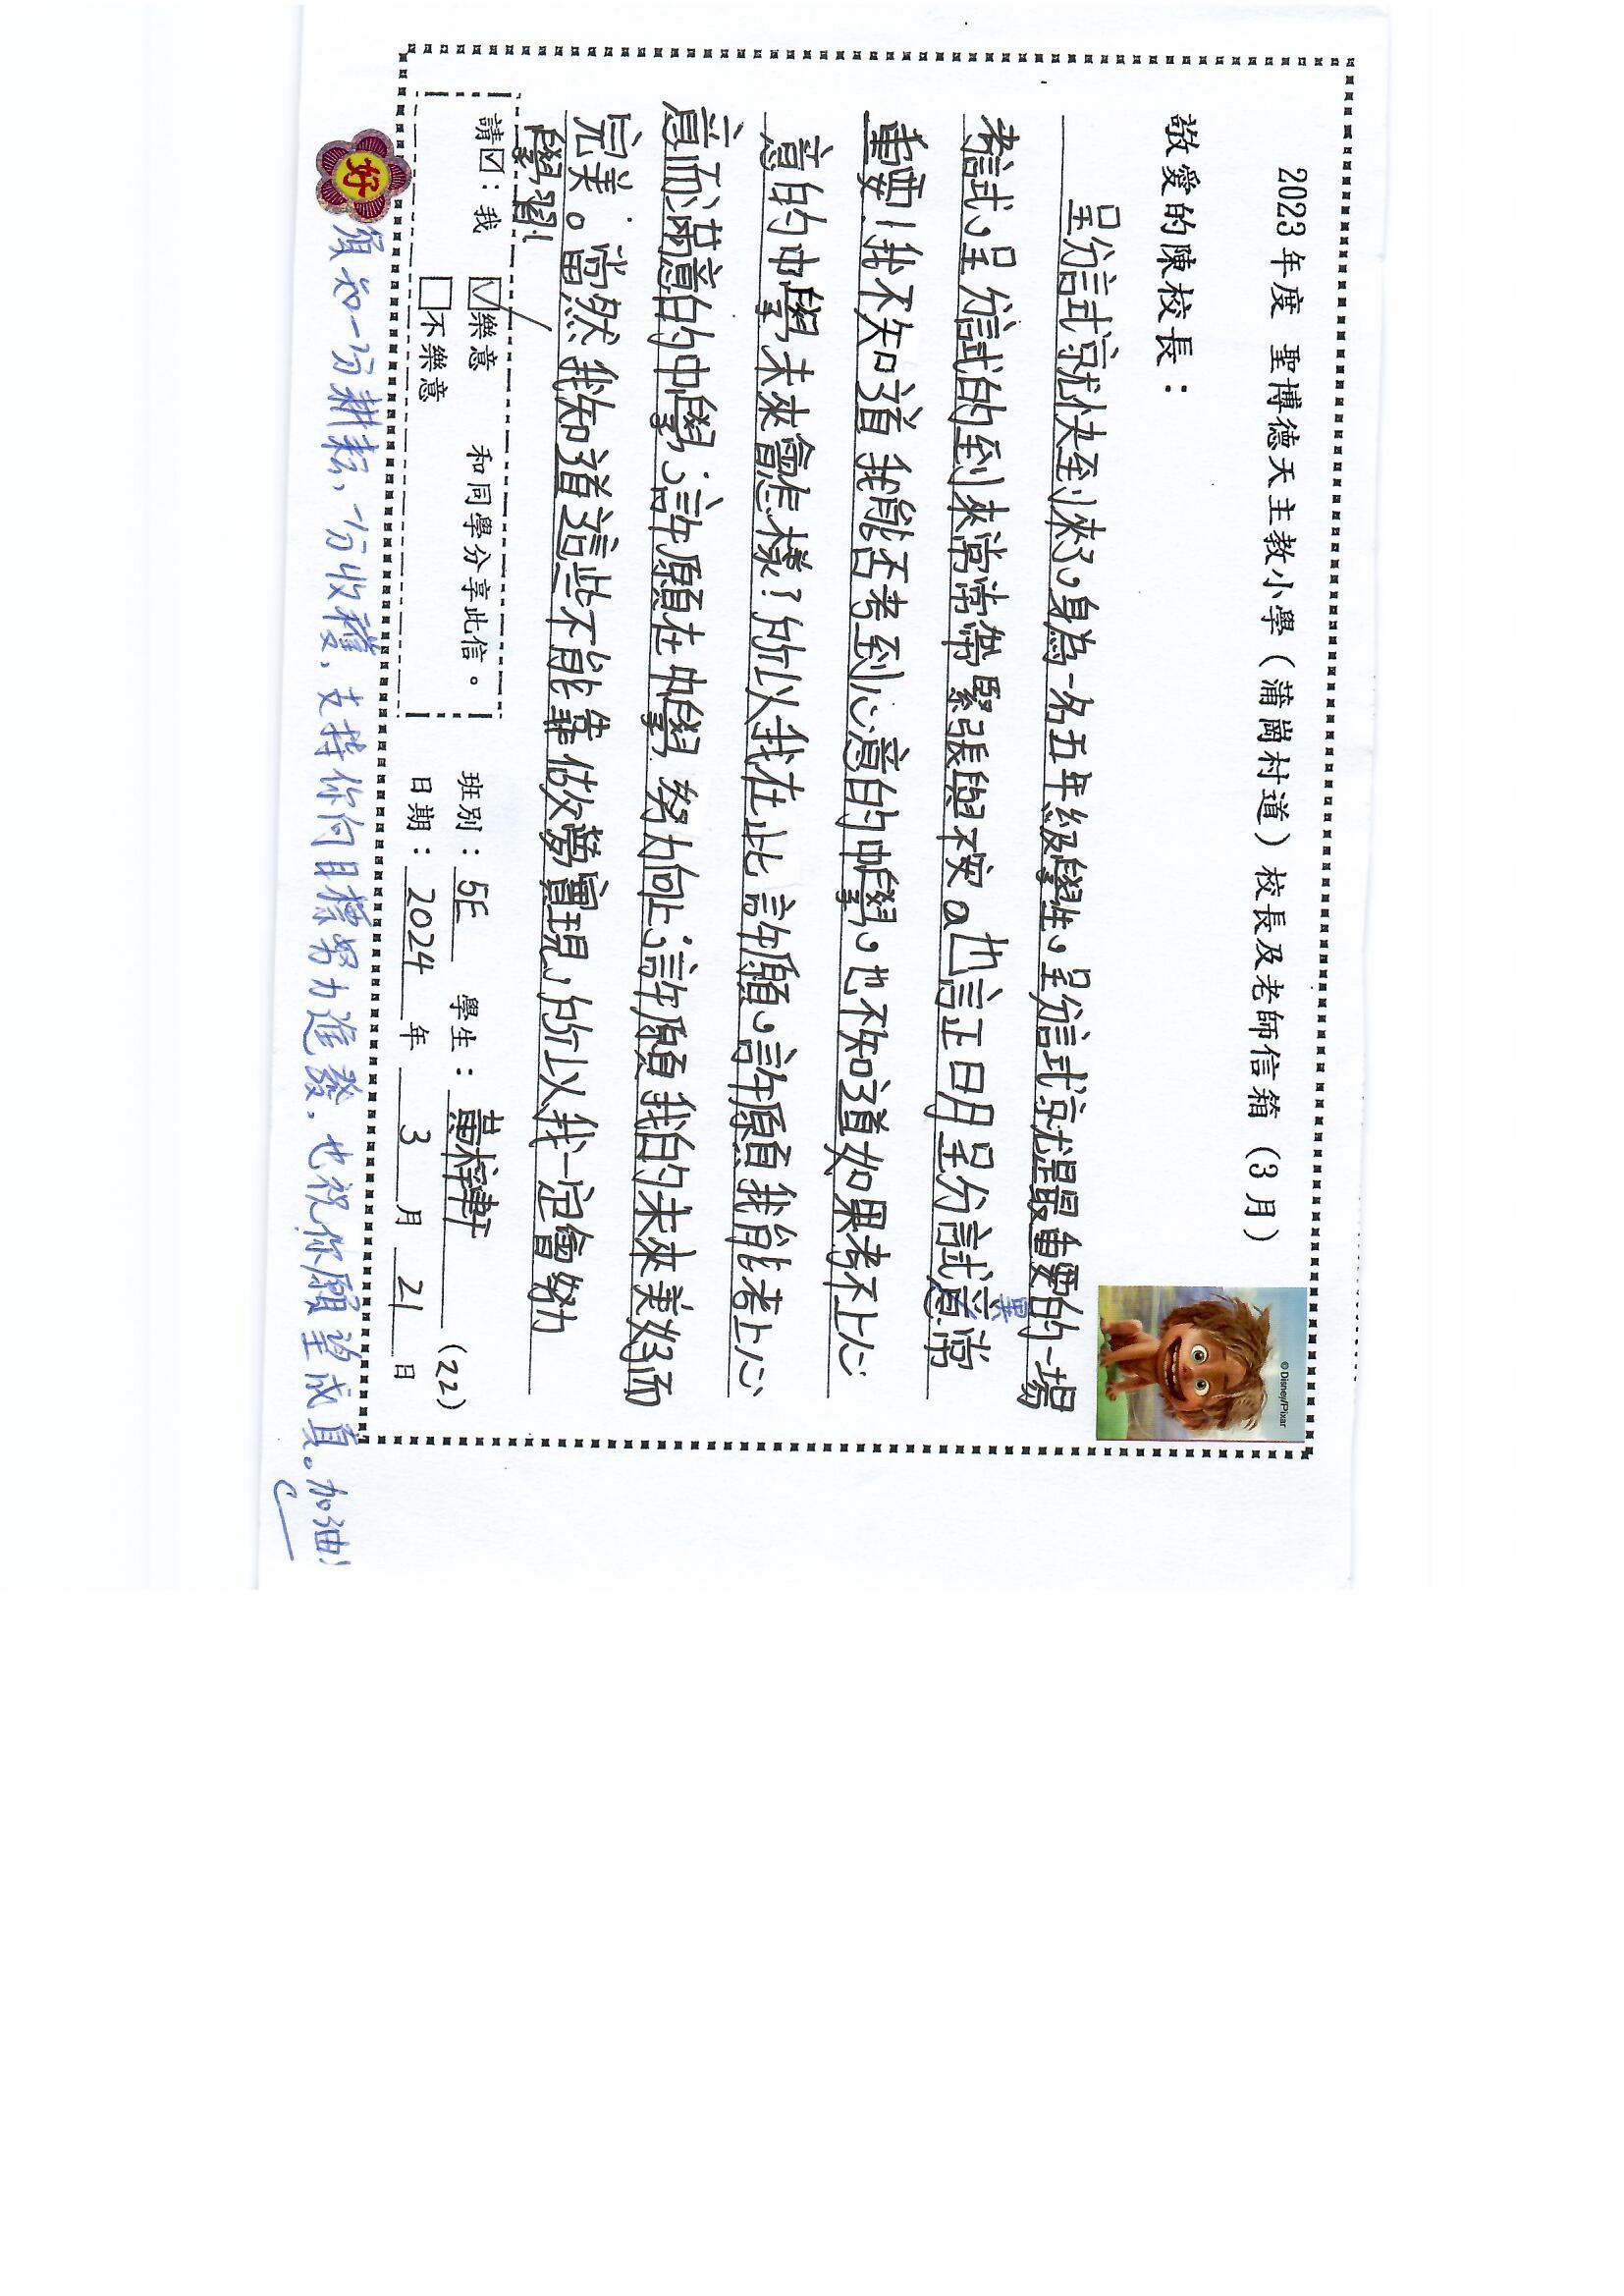 2023年度 聖博德天主教小學（蒲崗村道）校長及老師信箱（3月）
©Disney/Pixar
敬愛的陳校長：
呈分試就快到來了，身為一名五年級學生，呈分試就是最重要的一場
考試，呈分試的到來常常帶緊張與不安。也證明呈分試異常
重要！我不知道我能否考到心意的中學，也不知道如果考不上心
意的中學未來會怎樣？所以我在此許願，許願我能考上心
意而滿意的中學；許願在中學努力向上；許願我的未來美好而
完美。當然我知道這些不能靠做夢實現，所以我一定會努力
學習！
請☑：我 ☑樂意 和同學分享此信。
□不樂意
班別：5E 學生：黃梓軒 (22)
日期：2024年3月21日
好
須知一分耕耘，一分收穫，支持你向目標努力進發，也祝你願望成真。加油！